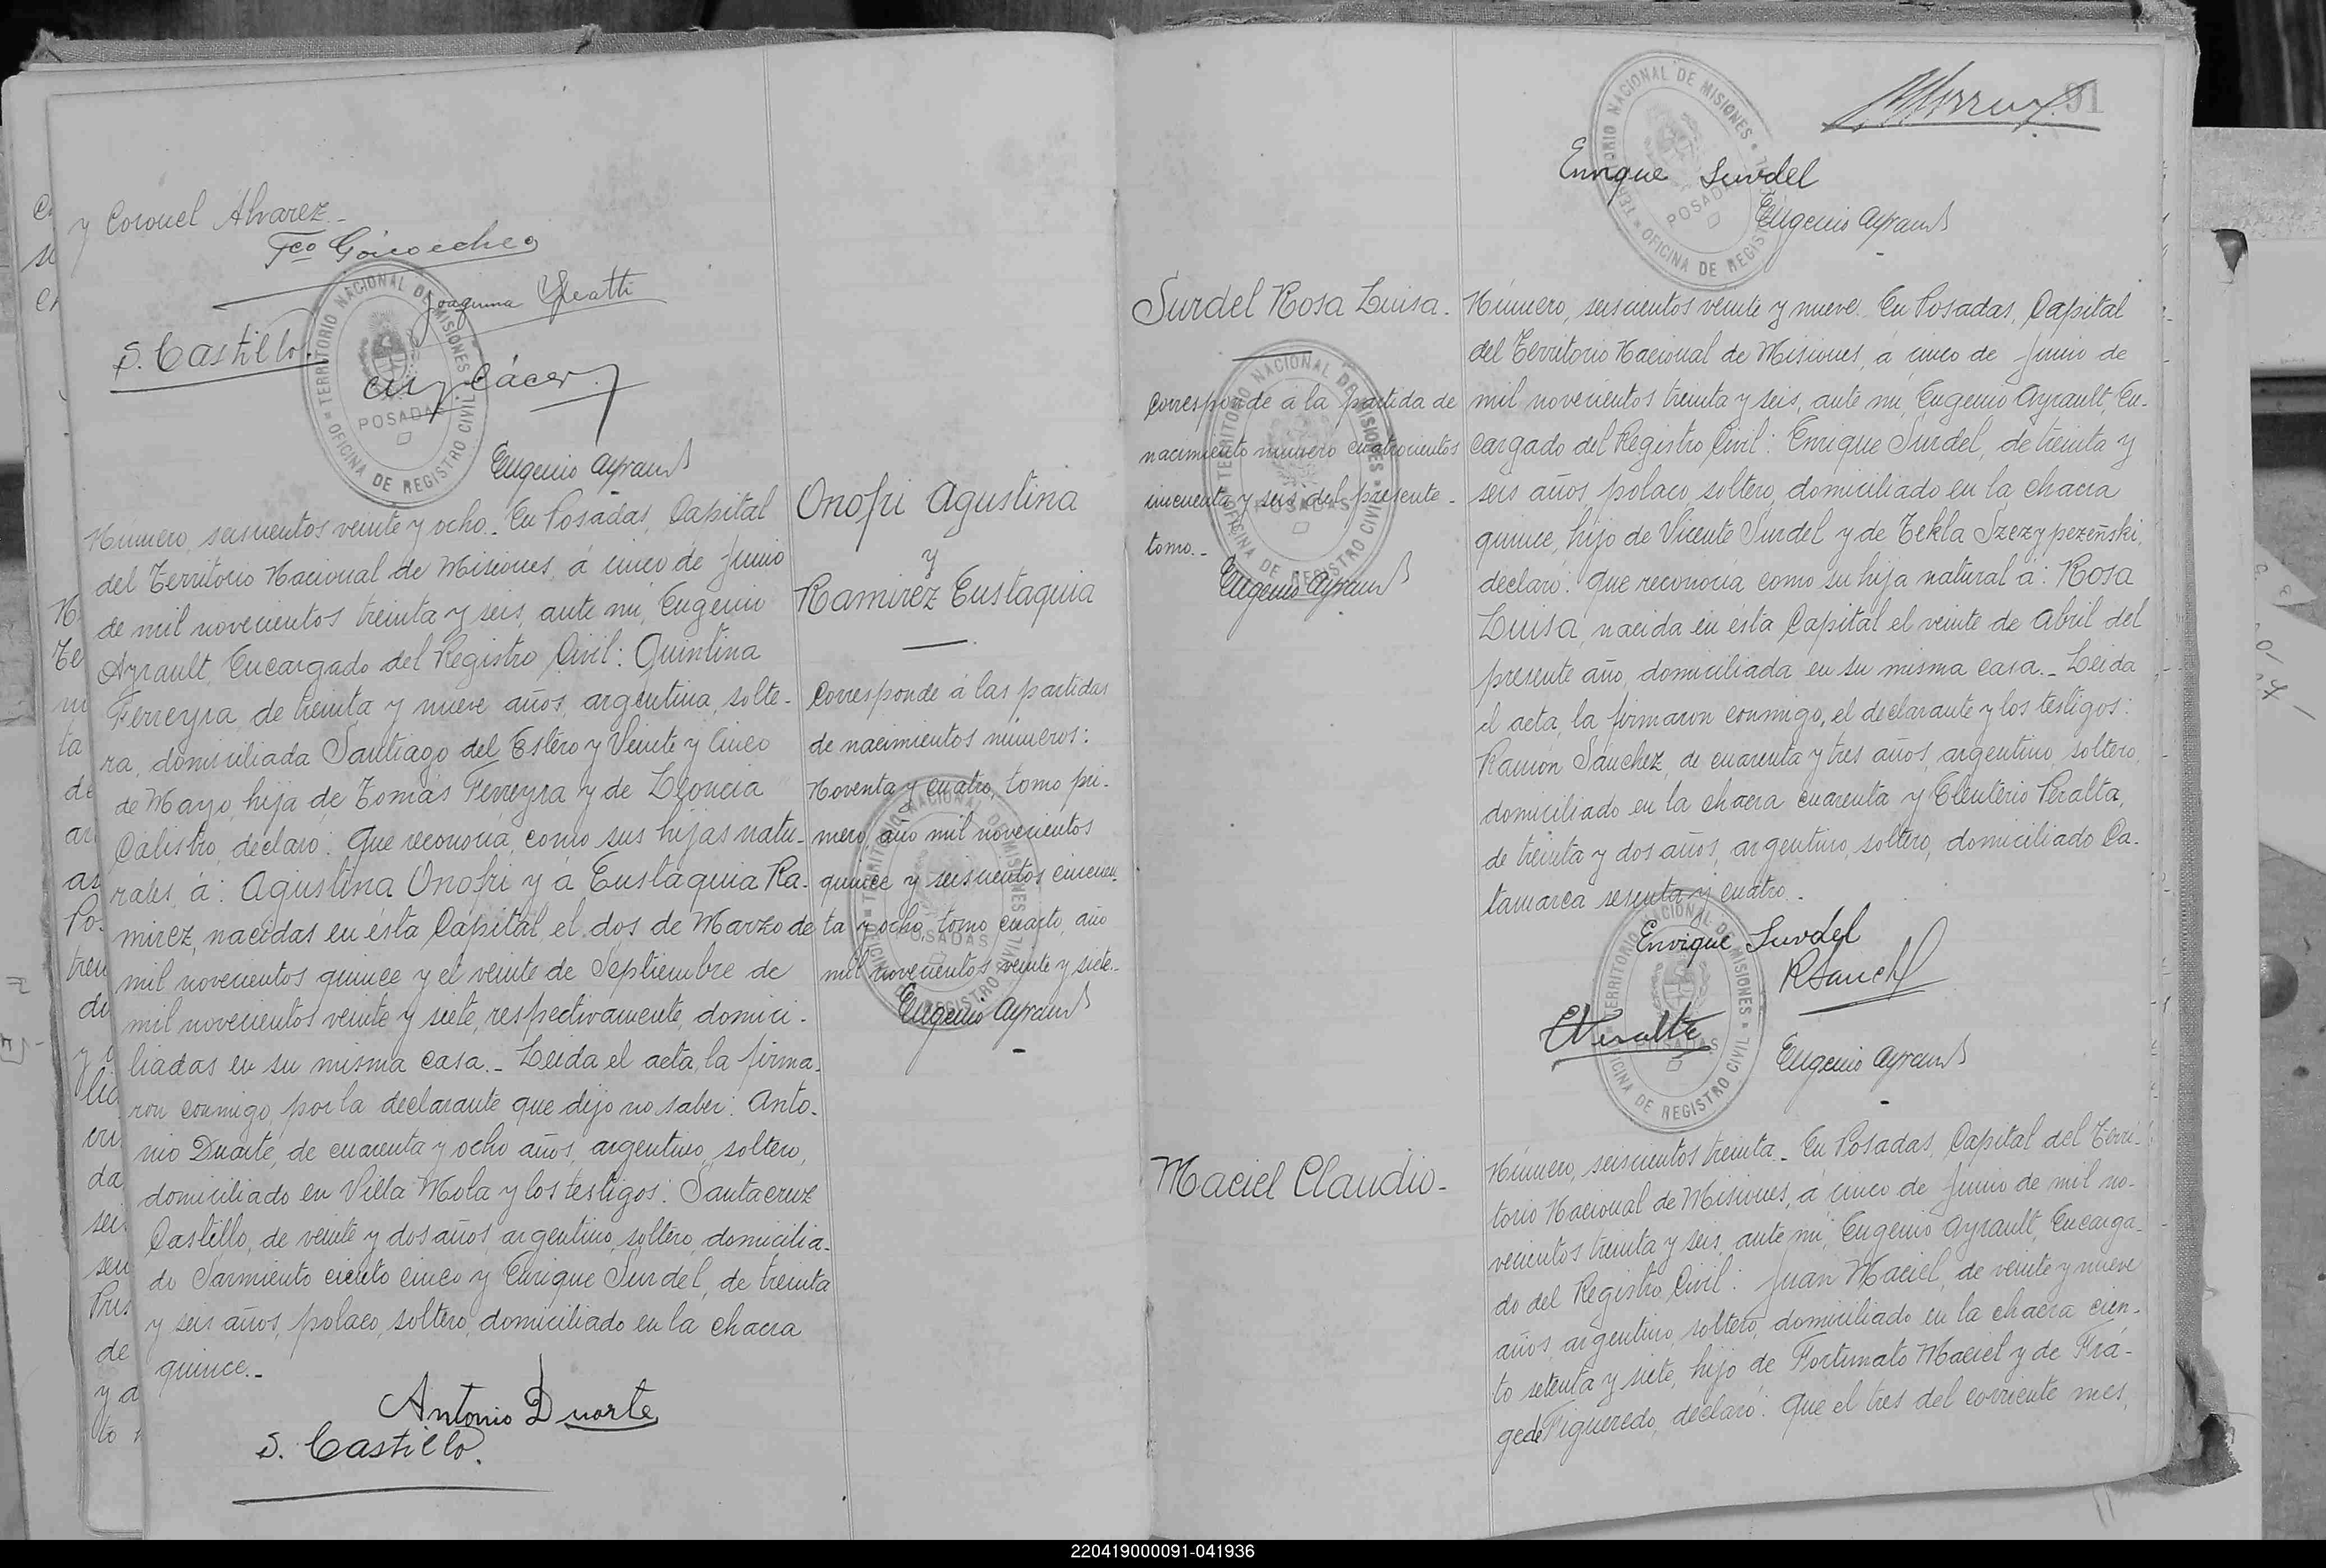 y Coronel Alvarez._
Fco Goicoechea
Joaquina
S. Castillo.
Eugenio Ayrault
Número, seiscientos veinte y ocho._ En Posadas, Capital
del Territorio Nacional de Misiones, á cinco de Junio
de mil novecientos treinta y seis, ante mi, Eugenio
Ayrault, Encargado del Registro Civil: Quintina
Ferreyra, de treinta y nueve años, argentina, solte-
ra, domiciliada Santiago del Estero y Veinte y Cinco
de Mayo, hija de Tomás Ferreyra y de Leoncia
Calistro, declaró: Que reconocia, como sus hijas natu-
rales, á: Agustina Onofri y á Eustaquia Ra-
mirez, nacidas en ésta Capital, el dos de Marzo de
mil novecientos quince y el veinte de Septiembre de
mil novecientos veinte y siete, respectivamente, domici-
liadas en su misma casa._ Leida el acta, la firma-
ron conmigo, por la declarante que dijo no saber: Anto-
nio Duarte, de cuarenta y ocho años, argentino, soltero,
domiciliado en Villa Mola y los testigos: Santacruz
Castillo, de veinte y dos años, argentino, soltero, domicilia-
do Sarmiento ciento cinco y Enrique Surdel, de treinta
y seis años, polaco, soltero, domiciliado en la chacra
quince._
Antonio Duarte
S. Castillo.
Onofri Agustina
y
Ramirez Eustaquia
Corresponde á las partidas
de nacimientos números:
Noventa y cuatro, tomo pri-
mero, año mil novecientos
quince y seiscientos cincuen-
ta y ocho, tomo cuarto, año
mil novecientos veinte y siete._
Eugenio Ayrault
91
Enrique Surdel
Eugenio Ayrault
Surdel Rosa Luisa.
Corresponde á la partida de
nacimiento número cuatrocientos
cincuenta y seis del presente
tomo._
Eugenio Ayrault
Número, seiscientos veinte y nueve. En Posadas, Capital
del Territorio Nacional de Misiones, á cinco de Junio de
mil novecientos treinta y seis, ante mi, Eugenio Ayrault, En-
cargado del Registro Civil: Enrique Surdel, de treinta y
seis años, polaco, soltero, domiciliado en la chacra
quince, hijo de Vicente Surdel y de Tekla Szezypezeñski,
declaró: Que reconocia como su hija natural á: Rosa
Luisa, nacida en ésta Capital el veinte de Abril del
presente año, domiciliada en su misma casa._ Leida
el acta, la firmaron conmigo, el declarante y los testigos:
Ramón Sánchez, de cuarenta y tres años, argentino, soltero,
domiciliado en la chacra cuarenta y Eleuterio Peralta,
de treinta y dos años, argentino, soltero, domiciliado Ca-
tamarca sesenta y cuatro._
Enrique Surdel
R Sanch
EPeralta
Eugenio Ayrault
Maciel Claudio-
Número, seiscientos treinta._ En Posadas, Capital del Terri-
torio Nacional de Misiones, á cinco de Junio de mil no-
vecientos treinta y seis, ante mi, Eugenio Ayrault, Encarga-
do del Registro Civil: Juan Maciel, de veinte y nueve
años, argentino, soltero, domiciliado en la chacra cien-
to setenta y siete, hijo de Fortunato Maciel y de Frá-
gede Figueredo, declaró: Que el tres del corriente mes,
TERRITORIO NACIONAL DE MISIONES
POSADAS
OFICINA DE REGISTRO CIVIL
220419000091-041936